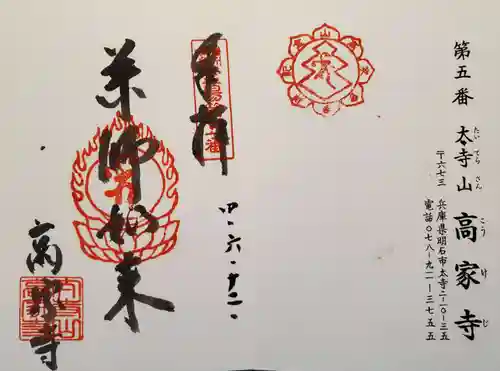 第五番 太寺山 高家寺
たいてらさん こうけじ
〒六七三 兵庫県明石市太寺二-一〇-三五
電話〇七八-九一一-三七五五
奉拝
四、六、十二、
薬師如来
高家寺